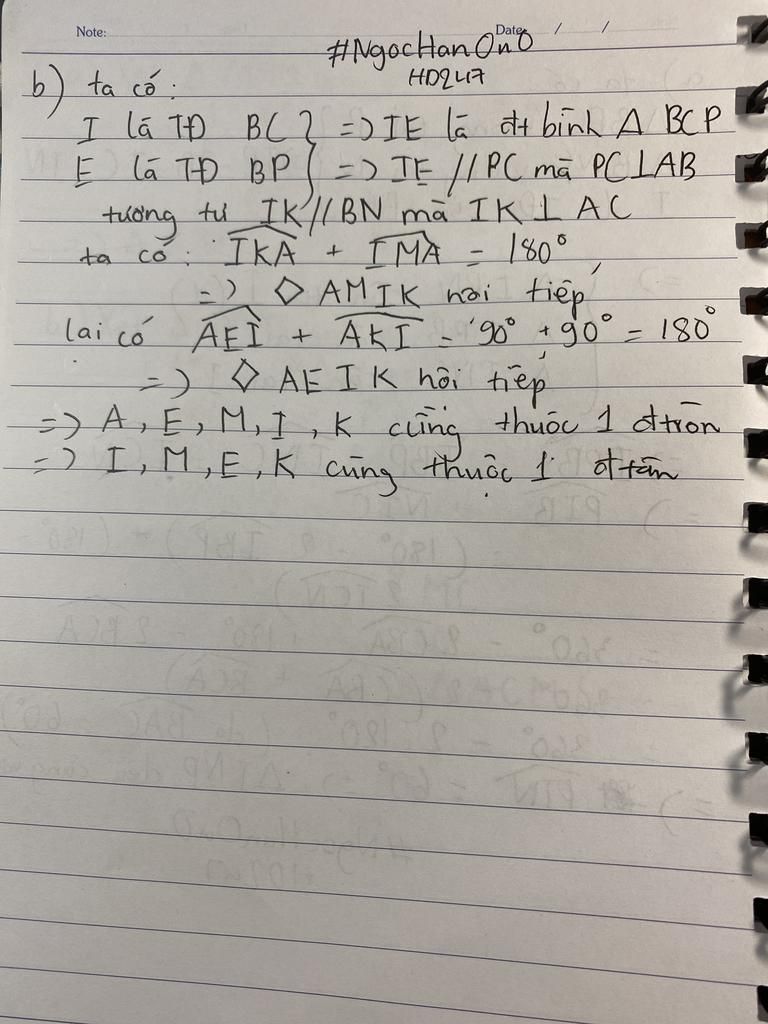 Note:
Date: / /
#NgocHanOnO
HD247
b) ta có:
I là TĐ BC } => IE là đt bình Δ BCP
E là TĐ BP } => IE // PC mà PC⊥AB
tương tự IK // BN mà IK ⊥ AC
ta có: IKA + IMA = 180°
=> ◇ AMIK nội tiếp
lại có AEI + AKI = 90° + 90° = 180°
=> ◇ AEIK nội tiếp
=> A, E, M, I, K cùng thuộc 1 đtròn
=> I, M, E, K cùng thuộc 1 đtròn